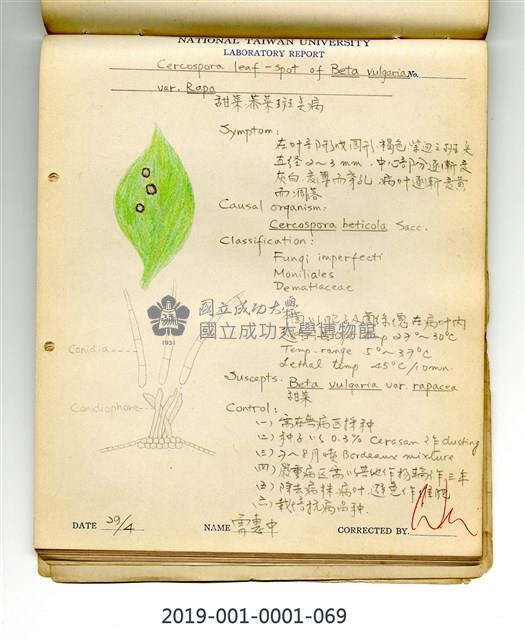 NATIONAL TAIWAN UNIVERSITY
LABORATORY REPORT
Cercospora leaf-spot of Beta vulgaris No.
var. Rapa
甜菜 斑点病
Symptom:
在叶 形成圓形 褐色 紫边之斑点
直径2~3 mm. 中心部分逐漸变
灰白 变薄而穿孔 病叶逐漸变黄
而凋落
Causal organism:
Cercospora beticola Sacc.
Classification:
Fungi imperfecti
Moniliales
Dematiaceae
國立成功大學
國立成功大學博物館
1931
在病叶内
27°~30°C
Temp. range 5°~37°C
Lethal temp 45°C/10min.
Conidia
Conidiophore
Suscepts: Beta vulgaria var. rapacea
甜菜
Control:
(一) 需在無病区採种
(二) 种子以0.3% Cerasan 作 dusting
(三) 7~8月噴 Bordeaux mixture
(四) 嚴重病区需以其他作物輪作三年
(五) 除去病株病叶, 避免作堆肥
(六) 栽培抗病品种.
DATE 29/4
NAME
CORRECTED BY.
2019-001-0001-069